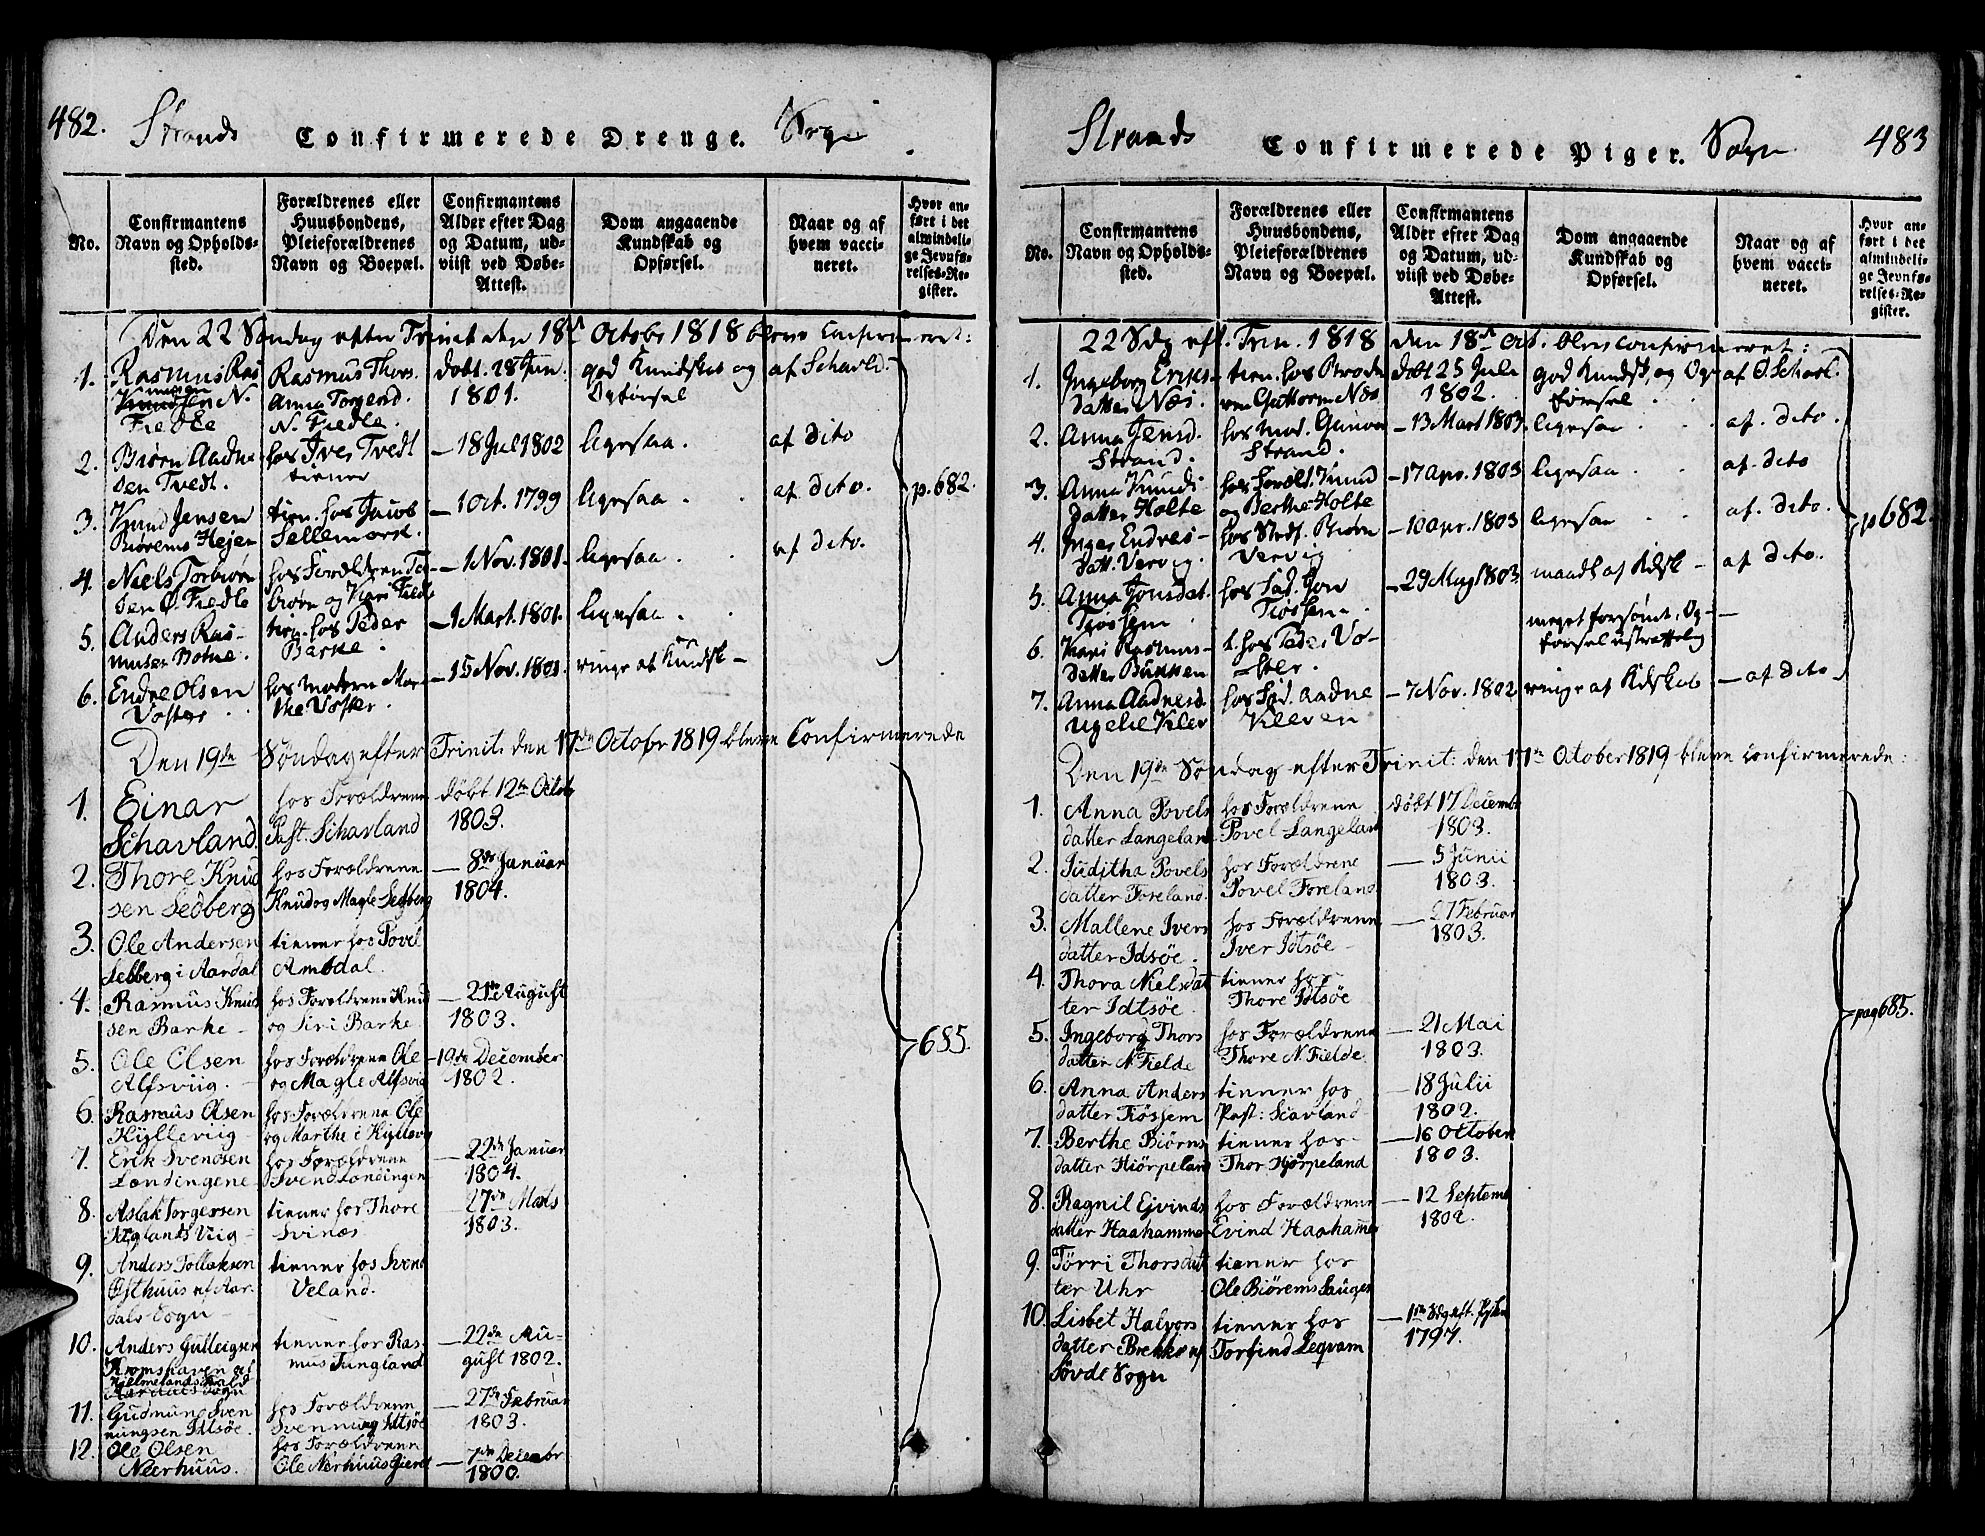 482.
Strands
Confirmerede Drenge.
Sogn
No.
Confirmantens Navn og Opholds-sted.
Forældrenes eller Huusbondens, Pleieforældrenes Navn og Boepæl.
Confirmantens Alder efter Dag og Datum, ud-viist ved Døbe-Attest.
Dom angaaende Kundskab og Opførsel.
Naar og af hvem vacci-neret.
Hvor an-ført i det almindeli-ge Jevnfø-relses-Re-gister.
Den 22 Søndag efter Trinit den 18d October 1818 bleve Confirmeret:
1. Rasmus Ras
N.
Fiedle
Rasmus Thors.
Anna Torgerd.
N. Fiedle.
dobt. 28 Jun.
1801.
god Kundskab og
Opførsel
af Schavl.
2. Biørn Aadne
sen Tvedt.
hos Iver Tvedt
tiener
18 Jul 1802
ligesaa.
af dito
3. Knud Jensen
Biørems Hejen
tien. hos Jacob
Sellemork.
1 Oct. 1799
ligesaa.
af dito.
4. Niels Torbiørn
sen Ø. Fiedle
hos Forældren Tor
biørn og Kari Fiedle
1 Nov. 1801.
ligesaa.
af dito.
5. Anders Ras-
musen Botne.
tien. hos Peder
Barke.
1 Mart. 1801.
ligesaa.
6. Endre Olsen
Voster
hos modern Mar-
the Voster.
15 Nov. 1801.
ringe af Kundsk-
p. 682.
Den 19de Søndag efter Trinit: den 17de Octobr 1819 bleve Confirmerede
1. Einar
Schavland.
hos Forældrene
Past. Schavland
døbt 12te Octob
1803.
2. Thore Knud
sen Sedberg
hos Forældrene
Knud og Magle Sedberg
8de Januar
1804.
3. Ole Andersen
Sedberg i Aardal
tiener hos Povel
Ambdal.
4. Rasmus Knud
sen Barke
hos Forældrene Knud
og Siri Barke
21de August
1803.
5. Ole Olsen
Alfsviig.
hos Forældrene Ole
og Magle Alfsvig
19de December
1802.
6. Rasmus Olsen
Hylleviig
hos Forældrene Ole
og Marthe i Hyllevig
7. Erik Svendsen
Løndingene
hos Forældrene
Svend Løndingen
22de Januar
1804.
8. Aslak Torgersen
Viig
tiener hos Thore
Svinæs
27de Marts
1803.
9. Anders Tollaksen
Østhuus af Aar
dals Sogn
tiener hos Svend
Veland.
10. Anders Gulleigsen
Kromshaven af
Hielmelands Kald
Aardals Sogn
tiener hos Ras
mus Tungland
22de Au-
gust 1802.
11. Gudmund Sven
nungsen Idtsøe.
hos Forældrene
Svennung Idtsøe
27de Februar
1803.
12. Ole Olsen
Nærhuus.
hos Forældrene
Ole Nærhuus
7de Decembr
1800.
685.
Strands
Confirmerede Piger.
Sogn
483
No.
Confirmantens Navn og Opholds-sted.
Forældrenes eller Huusbondens, Pleieforældrenes Navn og Boepæl.
Confirmantens Alder efter Dag og Datum, ud-viist ved Døbe-Attest.
Dom angaaende Kundskab og Opførsel.
Naar og af hvem vacci-neret.
Hvor an-ført i det almindeli-ge Jevnfø-relses-Re-gister.
22 Sdg eft. Trin. 1818 den 18d Oct. bleve confirmeret:
1. Ingeborg Eriks-
datter Næs.
tien. hos Brode
ren Guttorm Næs
døbt 25 Juli
1802.
god Kundsk. og Op
førsel
af O. Schavl.
2. Anna Jensd.
Strand.
hos Mod. Gunvor
Strand.
13 Mart 1803.
ligesaa
af. dito.
3. Anna Knuds
datter Holte
hos Foræld. Knud
og Berthe Holte
17 apr. 1803
ligesaa
af. dito
4. Inger Endres-
datt. Vervig.
hos Stedf. Biørn
Vervig
10 apr. 1803
ligesaa
af. dito.
5. Anna Jonsdat.
Tiøssem
hos Fad. Jon
Tiøssem.
29 Maj 1803
maadl. af Kdsk
af dito.
6. Kari Rasmus-
datter Bukken
t. hos Peder Vo-
ster.
meget forsømt, Op-
førsel ustraffelig
7. Anna Aadnesd.
Ugelie Klev
hos Fad. Aadne
Kleven
7 Nov. 1802
ringe af Kdskab
af dito
p 682.
Den 19de Søndag efter Trinit: den 17de October 1819 bleve confirmerede:
1. Anna Povels
datter Langeland
hos Forældrene
Povel Langeland
døbt 17 Decembr
1803.
2. Juditha Povels
datter Foreland.
hos Forældrene
Povel Foreland.
5 Junii
1803.
3. Mallene Ivers
datter Idtsøe.
hos Forældrene
Iver Idtsøe
27 Februar
1803.
4. Thora Nielsdat
ter Idtsøe.
tiener hos
Thore Idtsøe
5. Ingeborg Thors
datter N. Fielde
hos Forældrene
Thore N. Fielde.
21 Mai
1803.
6. Anna Anders
datter Tiøssem
tiener hos
Past: Scavland
18 Julii
1802.
7. Berthe Biørns
datter Hiørpeland
tiener hos
Thor Hjørpeland
16 October
1803.
8. Ragnil Ejvinds
datter Haahammer
hos Forældrene
Eivind Haahammer
12 Septemb
1802.
9. Tørri Thorsdat
ter Uhr
tiener hos
Ole Biørems
10. Lisbet Halvors
datter Brekke af
Søvde Sogn
tiener hos
Torfind Leqvam
1ste Sdg eft.
1797.
pag 685.